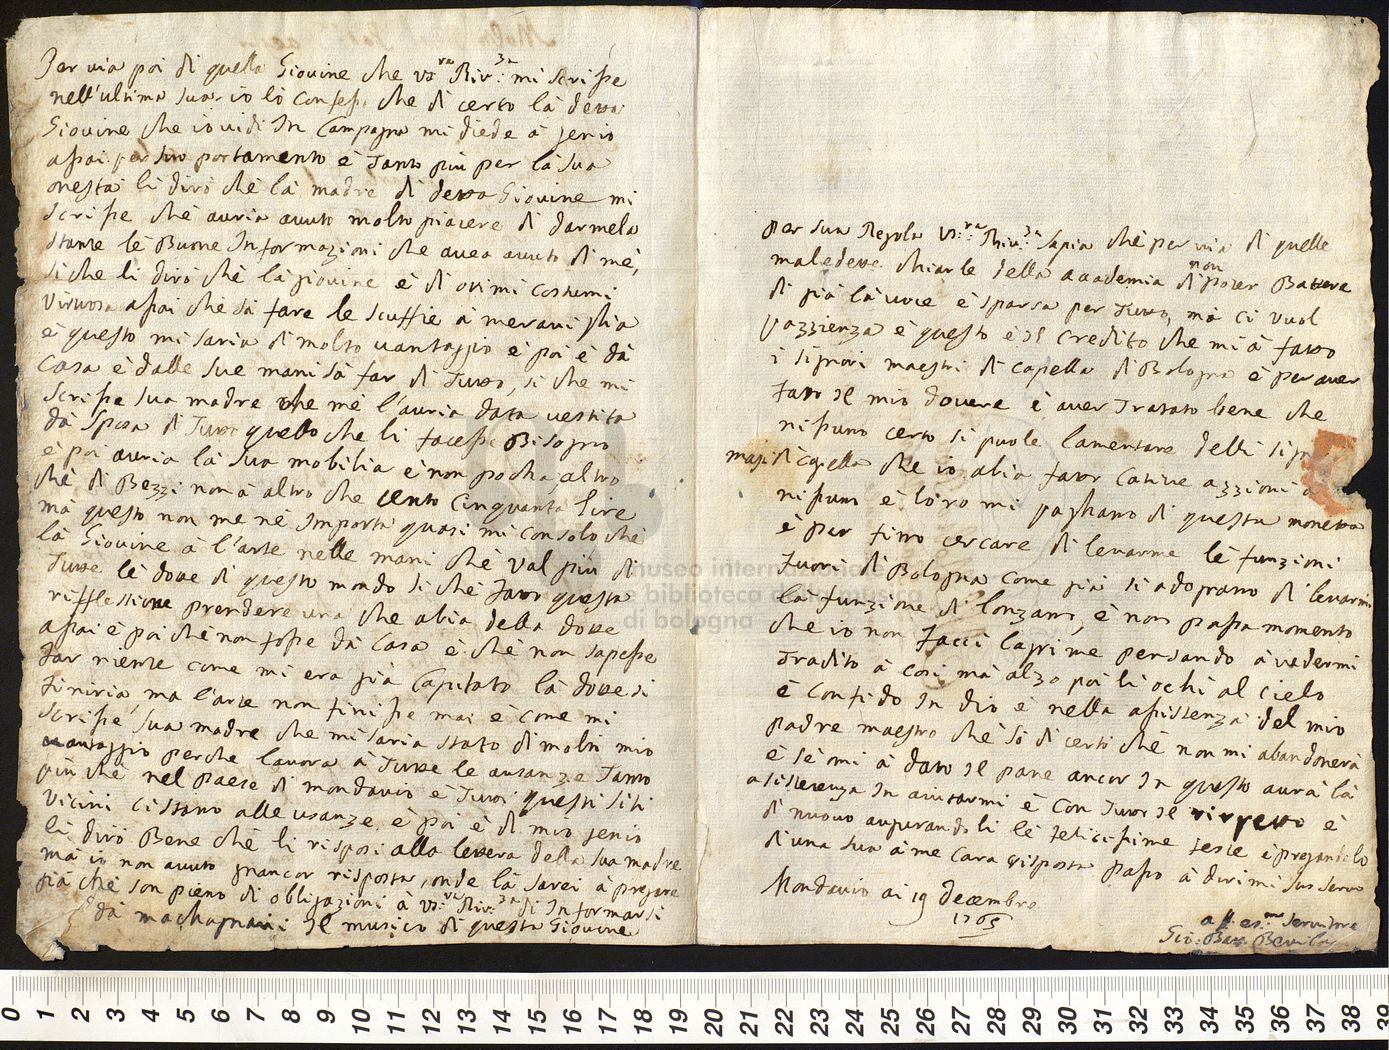 Per via poi di quella Giovine che vs.ra Riv.za mi scrisse
nell'ultima sua, io lo confesso che di certo la detta
Giovine che io vidi In Campagna mi diede à jenio
assai per suo portamento e Tanto piu per la sua
onestà li dirò che la madre di detta Giovine mi
scrisse che auria auuto molto piacere di darmela
stante le Buone Informazioni che auea auuto di me,
si che li dirò che la giouine è di otimi costumi
Virtuosa assai che sà fare le scuffie à merauiglia
e questo mi saria di molto uantaggio e poi è dà
Casa e dalle sue mani sà far di Tutto, si che mi
scrisse sua madre che me l'auria data vestita
dà Sposa di Tutto quello che li facesse Bisogno
è poi auria la sua mobilia e non pocha, altro
che di Bezzi non à altro che cento Cinquanta lire
mà questo non me ne Importa quasi mi consolo che
là Giouine à l'arte nelle mani che val più di
Tutte le dote di questo mondo si che fatto questa
rifflessione prendere una che abia della dotte
assai è poi che non fosse dà Casa è che non sapesse
far niente come mi era già Capitato la dotte si
finiria, ma l'arte non finisse mai e come mi
scrisse sua madre che mi saria stato di molto mio
uantaggio perche lauora à Tutte le ausanze Tanto
più che nel paese di mondauio e Tutti questi siti
Vicini ci stano alle usanze, e poi è di mio jenio
li dirò Bene che li risposi alla lettera della sua madre
mà io non auuto grancor risposta, onde la sarei à pregare
già che son pieno di obligazioni à vs.ra Riv.za di Informarsi
dà machagnani Il musico di questa Giouine
per sua Regola vs.ra Riv.za sapia che per via di quelle
maledette chiarle della accademia di non poter Battere
di già là uoce è sparsa per Tutto, mà ci vuol
pazzienza e questo è il Credito che mi à fatto
i signori maestri di capella di Bologna e per auer
fatto il mio douere e auer Tratato bene che
nissuno certo si puole lamentare delli sig
maestri di capella che io abia fatto Catiue azzioni a
nissuno e loro mi paghano di questa moneta
è per fino cercare di leuarme le funzioni
fuori di Bologna Come già si adoprano di leuarmi
la funzione di lonzano, e non passa momento
che io non facci lagrime pensando à vedermi
Tradito à cosi, mà alzo poi li ochi al cielo
e Confido In dio e nella assistenza del mio
padre maestro che sò di certi che non mi abandonerà
e se mi à dato il pane ancor In questo aurà là
assisterenza In aiutarmi è con Tutto il rispetto è
di nuouo augurandoli le felicissime feste è pregandolo
di una sua à me Cara risposta passo à dirmi suo seruo
Mondauio ai 19 decembre
1763
aff.es.mo seruitore
Gio: Batt.
museo internazionale
e biblioteca della musica
di bologna
0 1 2 3 4 5 6 7 8 9 10 11 12 13 14 15 16 17 18 19 20 21 22 23 24 25 26 27 28 29 30 31 32 33 34 35 36 37 38 39